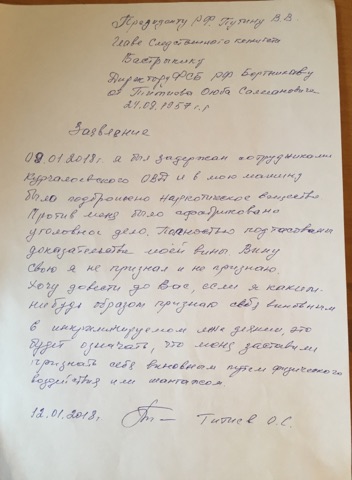 Президенту РФ Путину В.В.
Главе Следственного комитета
Бастрыкину
Директору ФСБ РФ Бортникову
от Титиева Оюба Салмановича
24.08.1957 г.р
Заявление
09.01.2018г. я был задержан сотрудниками
Курчалоевского ОВД и в мою машину
было подброшено наркотическое вещество
Против меня было сфабриковано
уголовное дело. Полностью подтасованы
доказательства моей вины Вину
свою я не признал и не признаю.
Хочу довести до Вас, если я каким-
нибудь образом признаю себя виновным
в инкриминируемом мне деянии, это
будет означать, что меня заставили
признать себя виновным путем физического
воздействия или шантажом.
12.01.2018г. Титиев О.С.